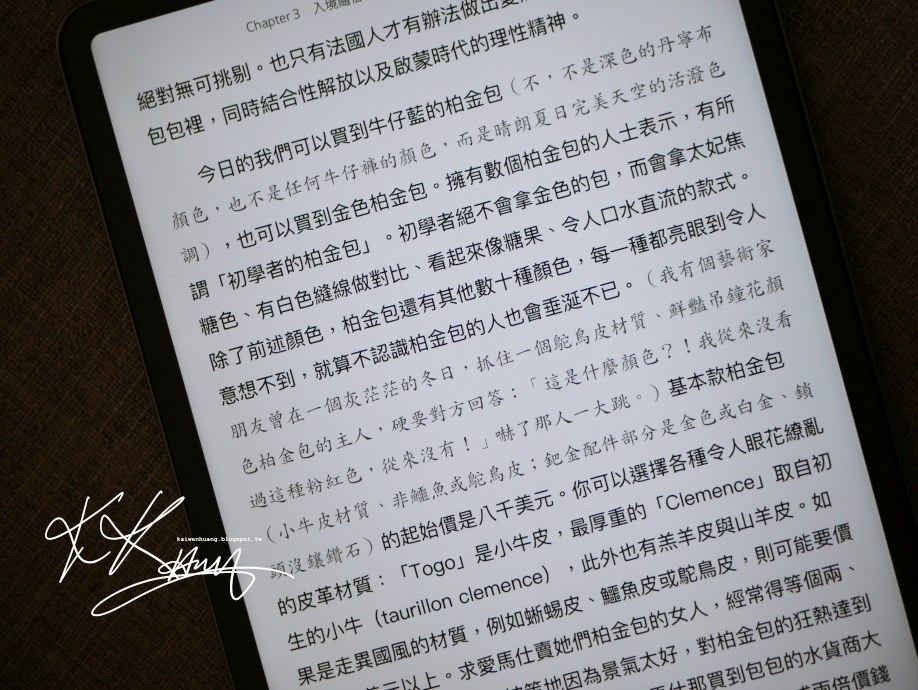 Chapter 3 入境隨俗
絕對無可挑剔。也只有法國人才有辦法做出愛
包包裡,同時結合性解放以及啟蒙時代的理性精神。
今日的我們可以買到牛仔藍的柏金包(不,不是深色的丹寧布
顏色,也不是任何牛仔褲的顏色,而是晴朗夏日完美天空的活潑色
調),也可以買到金色柏金包。擁有數個柏金包的人士表示,有所
謂「初學者的柏金包」。初學者絕不會拿金色的包,而會拿太妃焦
糖色、有白色縫線做對比、看起來像糖果、令人口水直流的款式。
除了前述顏色,柏金包還有其他數十種顏色,每一種都亮眼到令人
意想不到,就算不認識柏金包的人也會垂涎不已。(我有個藝術家
朋友曾在一個灰茫茫的冬日,抓住一個鴕鳥皮材質、鮮豔吊鐘花顏
色柏金包的主人,硬要對方回答:「這是什麼顏色?!我從來沒看
過這種粉紅色,從來沒有!」嚇了那人一大跳。)基本款柏金包
(小牛皮材質、非鱷魚或鴕鳥皮;鈀金配件部分是金色或白金、鎖
頭沒鑲鑽石)的起始價是八千美元。你可以選擇各種令人眼花繚亂
的皮革材質:「Togo」是小牛皮,最厚重的「Clemence」取自初
生的小牛(taurillon clemence),此外也有羔羊皮與山羊皮。如
果是走異國風的材質,例如蜥蜴皮、鱷魚皮或鴕鳥皮,則可能要價
美元以上。求愛馬仕賣她們柏金包的女人,經常得等個兩、
因為景氣太好,對柏金包的狂熱達到
那買到包包的水貨商大
兩倍價錢
KK Huang
kaiwenhuang.blogspot.tw